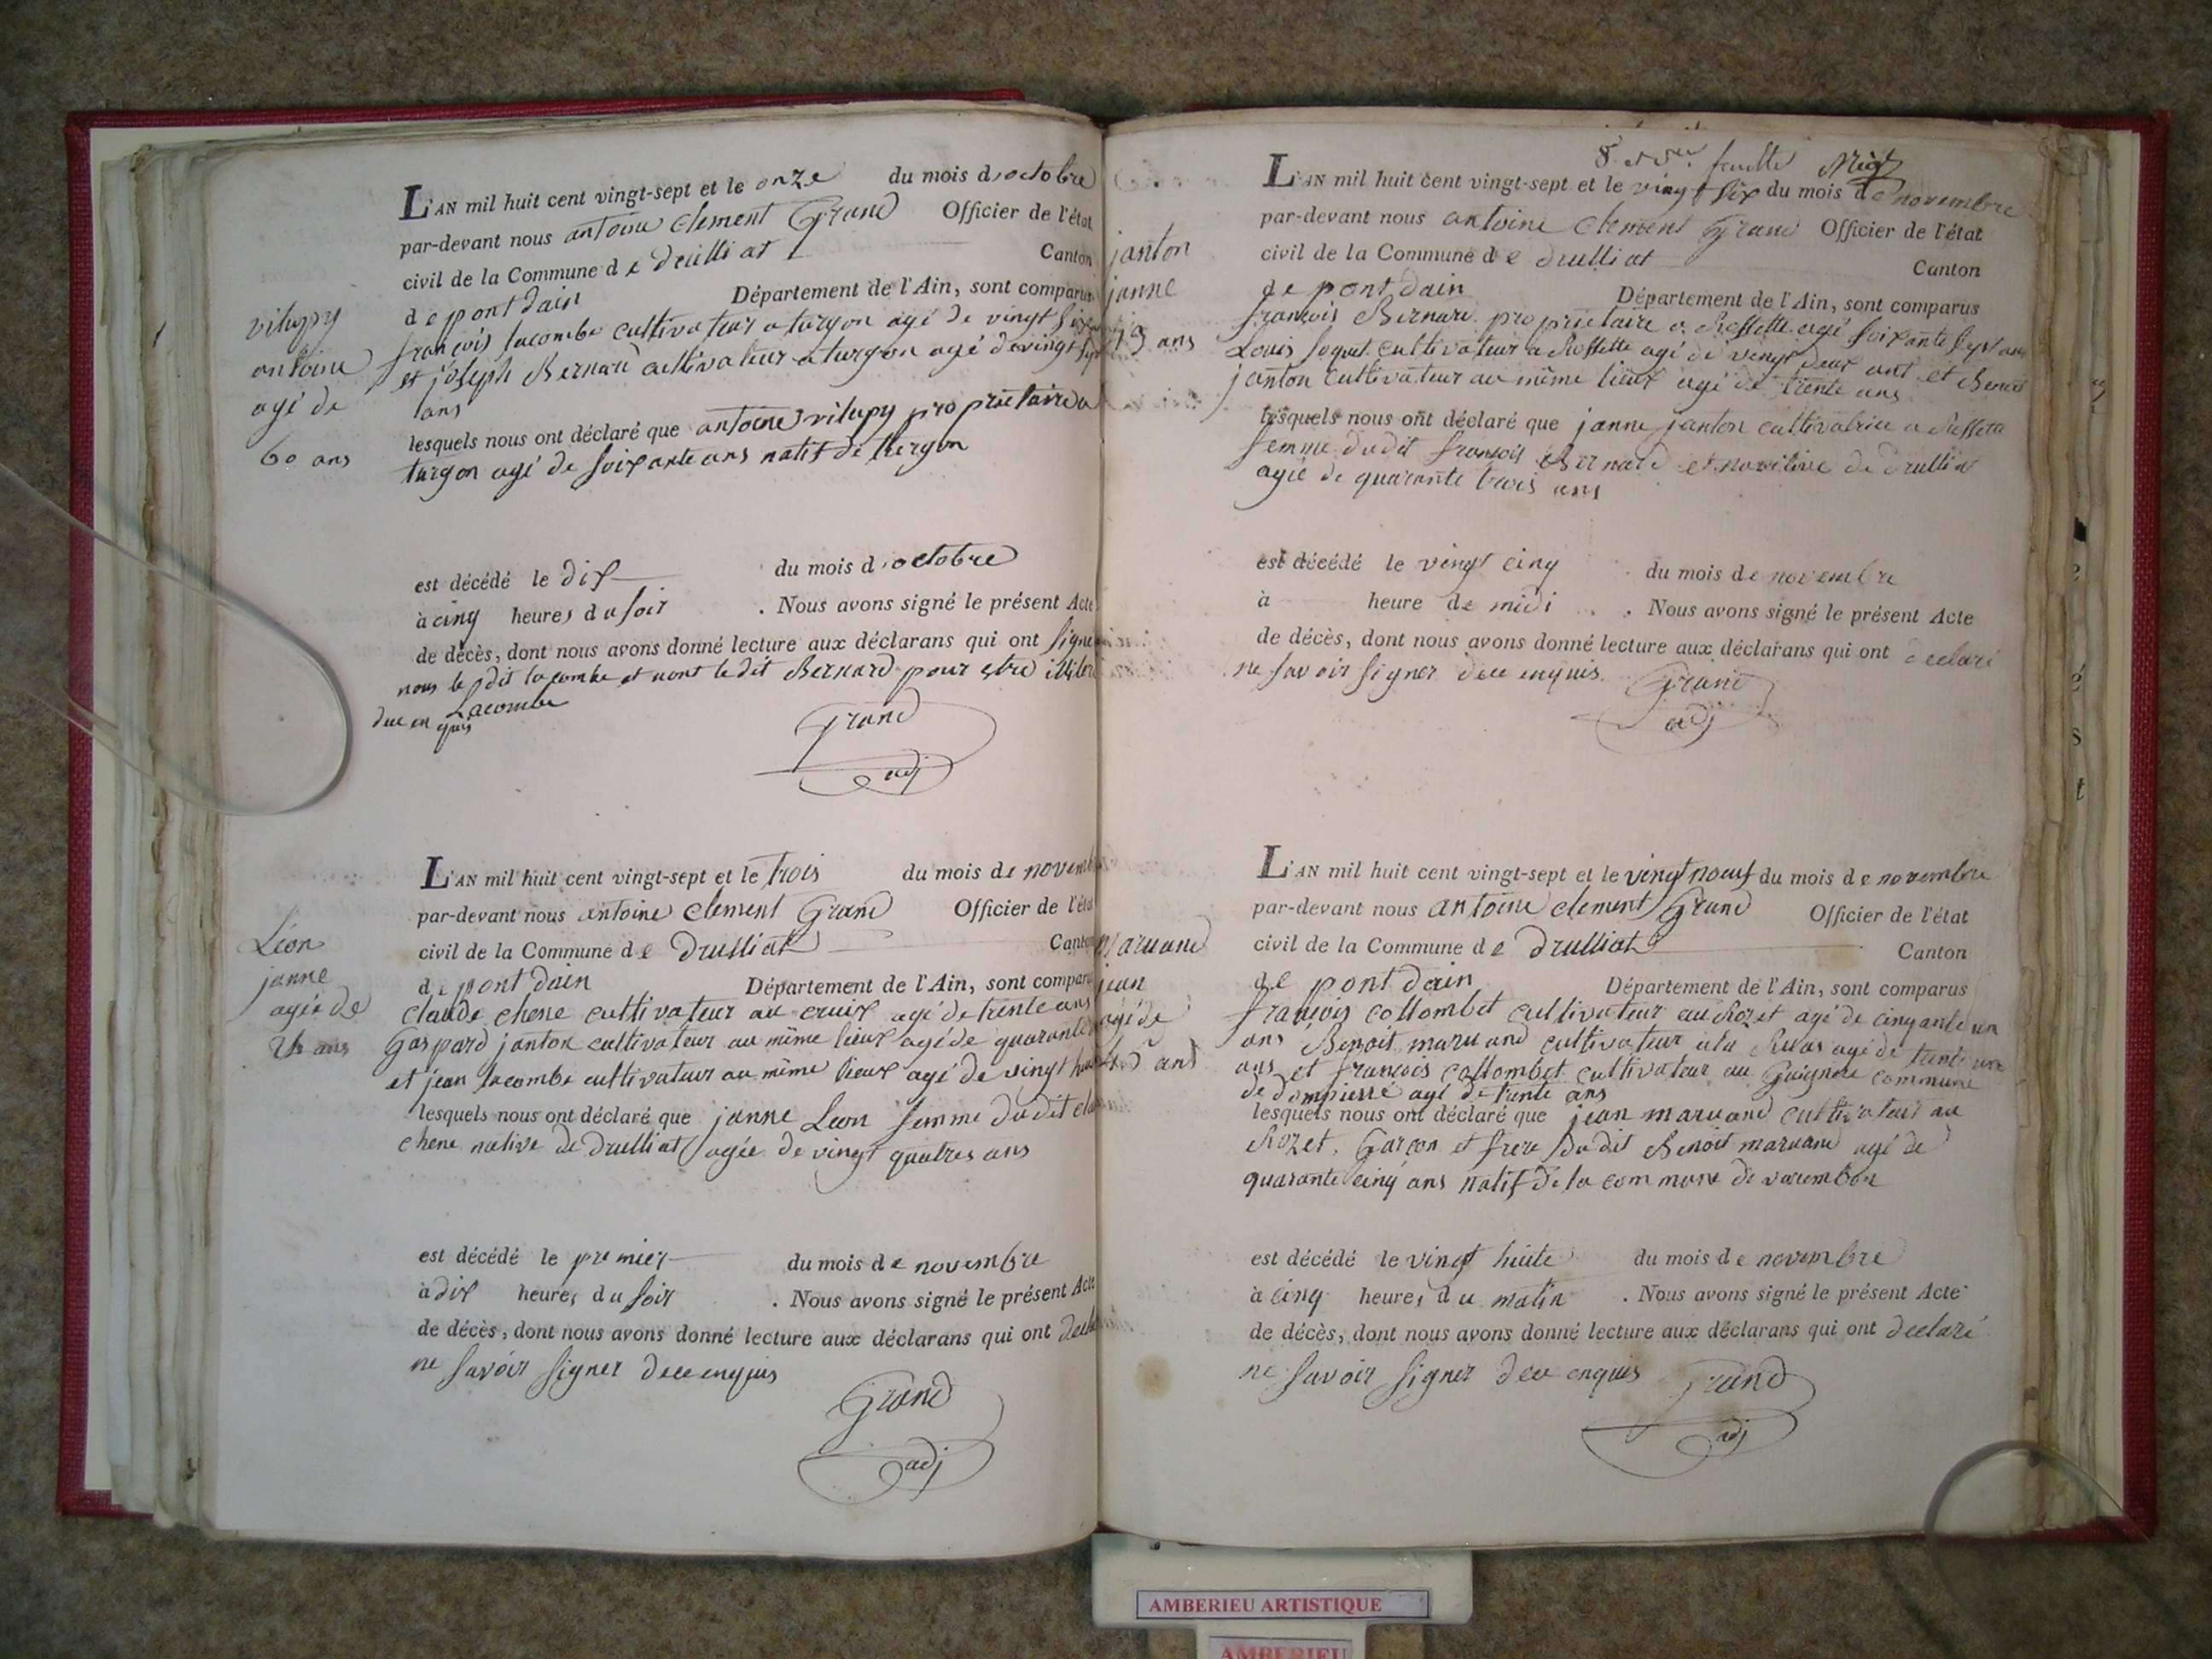 L'AN mil huit cent vingt-sept et le onze du mois d'octobre
par-devant nous antoine clement Grand Officier de l'état
civil de la Commune de druilliat Canton
de pont dain Département de l'Ain, sont comparus
françois lacombe cultivateur a turgon agé de vingt six
et joseph Bernard cultivateur a turgon agé de vingt
ans
lesquels nous ont déclaré que antoine vitupy proprietaire a
turgon agé de soixante ans natif de turgon
vitupy
antoine
agé de
60 ans
est décédé le dix du mois d'octobre
à cinq heures du soir . Nous avons signé le présent Acte
de décès, dont nous avons donné lecture aux déclarans qui ont signe
nous le dit lacombe et nont le dit Bernard pour etre
due en quis Lacombe
Grand
adj
L'AN mil huit cent vingt-sept et le trois du mois de novemb
par-devant nous antoine clement Grand Officier de l'état
civil de la Commune de Drulliat Canton
de pont dain Département de l'Ain, sont compar
claude chene cultivateur au cruix agé de trente ans
Gaspard janton cultivateur au même lieux agé de quarante
et jean lacombe cultivateur au même lieux agé de vingt hu
lesquels nous ont déclaré que janne Leon femme du dit cla
chene native de Drulliat agée de vingt quatres ans
Léon
janne
agée de
24 ans
est décédé le premier du mois de novembre
à dix heures du soir . Nous avons signé le présent Acte
de décès, dont nous avons donné lecture aux déclarans qui ont decla
ne savoir signer dece enquis
Grand
adj
8 et feuille
L'AN mil huit cent vingt-sept et le vingt six du mois de novembre
par-devant nous antoine clement Grand Officier de l'état
civil de la Commune de drulliat Canton
de pont dain Département de l'Ain, sont comparus
françois Bernard proprietaire a Rossette agé soixante sept ans
Louis soquet cultivateur a Rossette agé de vingt deux ans et Benoit
janton cultivateur au même lieux agé de trente ans
lesquels nous ont déclaré que janne janton cultivatrice a
femme dudit françois Bernard et native de drullia
agée de quarante trois ans
janton
janne
43 ans
est décédé le vingt cinq du mois de novembre
à heure de midi . Nous avons signé le présent Acte
de décès, dont nous avons donné lecture aux déclarans qui ont declaré
ne savoir signer dece enquis.
Grand
adj
L'AN mil huit cent vingt-sept et le vingt noeuf du mois de novembre
par-devant nous antoine clement Grand Officier de l'état
civil de la Commune de Drulliat Canton
de pont dain Département de l'Ain, sont comparus
françois collombet cultivateur au Rozet agé de cinqante un
ans Benoit maruand cultivateur a la Ruas agé de trente une
ans et françois collombet cultivateur au Guignere commune
de dompierre agé de trente ans
lesquels nous ont déclaré que jean maruand cultivateur au
Rozet, Garçon et frere du dit Benoit maruand agé de
quarante cinq ans natif de la commune de varembon
maruand
jean
agé de
45 ans
est décédé le vingt huite du mois de novembre
à cinq heures du matin . Nous avons signé le présent Acte
de décès, dont nous avons donné lecture aux déclarans qui ont declaré
ne savoir signer dece enquis
Grand
adj
AMBERIEU ARTISTIQUE
AMBERIEU